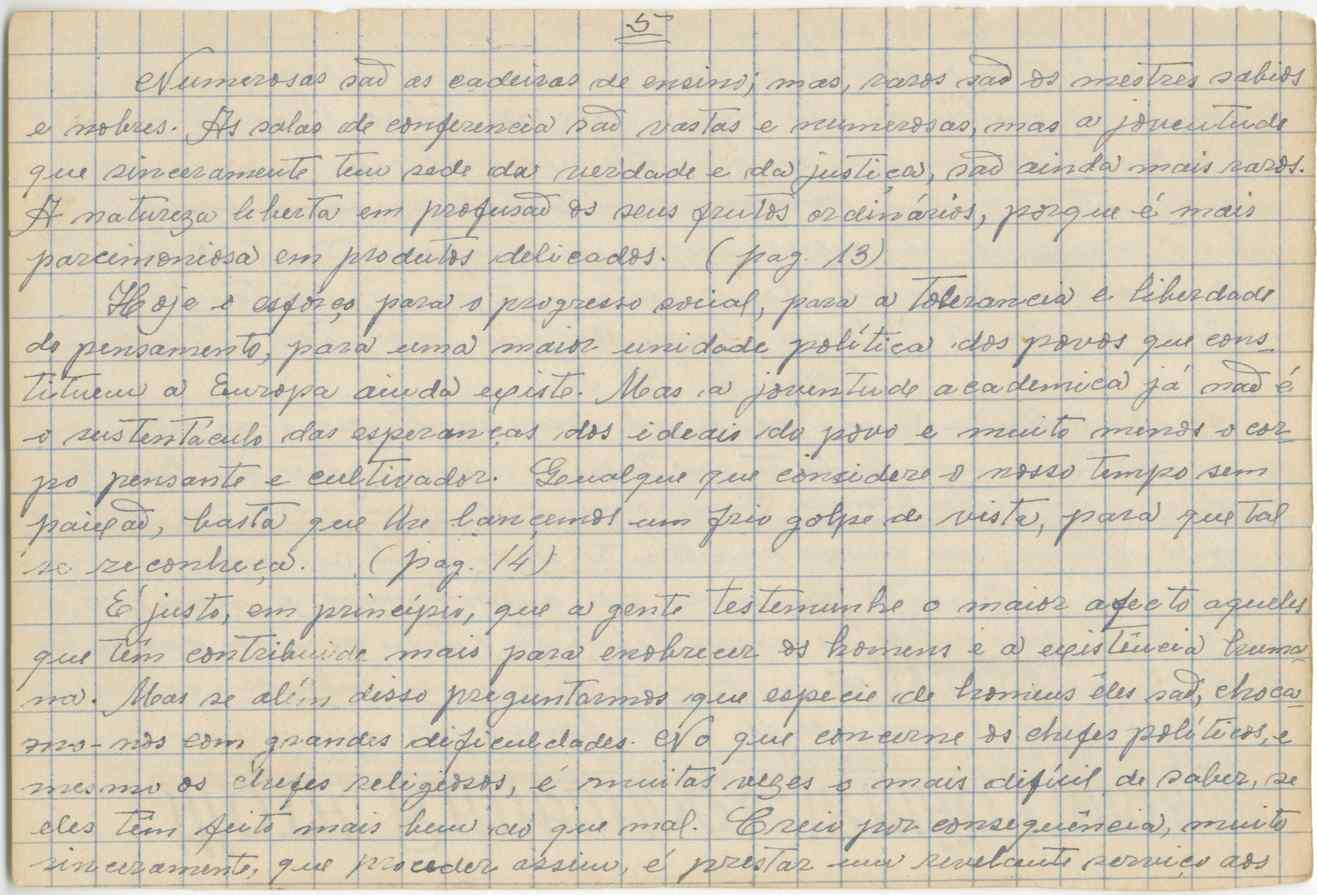 5
Numerosas são as cadeiras de ensino; mas, raros são os mestres sabios
e nobres. As salas de conferencia são vastas e numerosas, mas a joventude
que sinceramente tem sede da verdade e da justiça, são ainda mais raros.
A natureza liberta em profusão os seus frutos ordinários, porque é mais
parcimoniosa em produtos delicados. (pag. 13)
Hoje o esforço para o progresso social, para a tolerancia e liberdade
do pensamento, para uma maior unidade política dos povos que cons-
tituem a Europa ainda existe. Mas a joventude academica já não é
o sustentáculo das esperanças dos ideais do povo e muito menos o cor-
po pensante e cultivador. Qualque que considere o nosso tempo sem
paixão, basta que lhe lancemos um frio golpe de vista, para que tal
se reconheça. (pag. 14)
É justo, em princípio, que a gente testemunhe o maior afecto aqueles
que têm contribuido mais para enobrecer os homens e a existência huma-
na. Mas se além disso preguntarmos que especie de homens êles são, choca-
mo-nos com grandes dificuldades. No que concerne os chefes políticos, e
mesmo os chefes religiosos, é muitas vezes o mais difícil de saber, se
eles têm feito mais bem do que mal. Creio por consequência, muito
sinceramente, que proceder assim, é prestar um revelante serviço aos